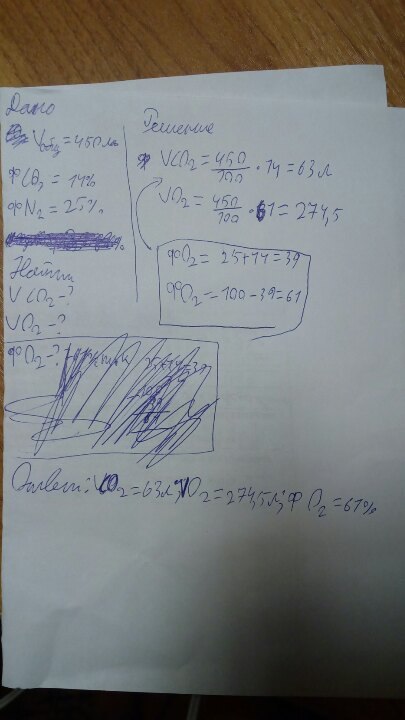 Дано
Vобщ = 450 л
φCO₂ = 14%
φN₂ = 25%
Найти
VCO₂ - ?
VO₂ - ?
φO₂ - ?
Решение
VCO₂ = 450/100 · 14 = 63 л
VO₂ = 450/100 · 61 = 274,5
φO₂ = 25+14 = 39
φO₂ = 100 - 39 = 61
Ответ: VCO₂ = 63 л; VO₂ = 274,5 л; φO₂ = 61%